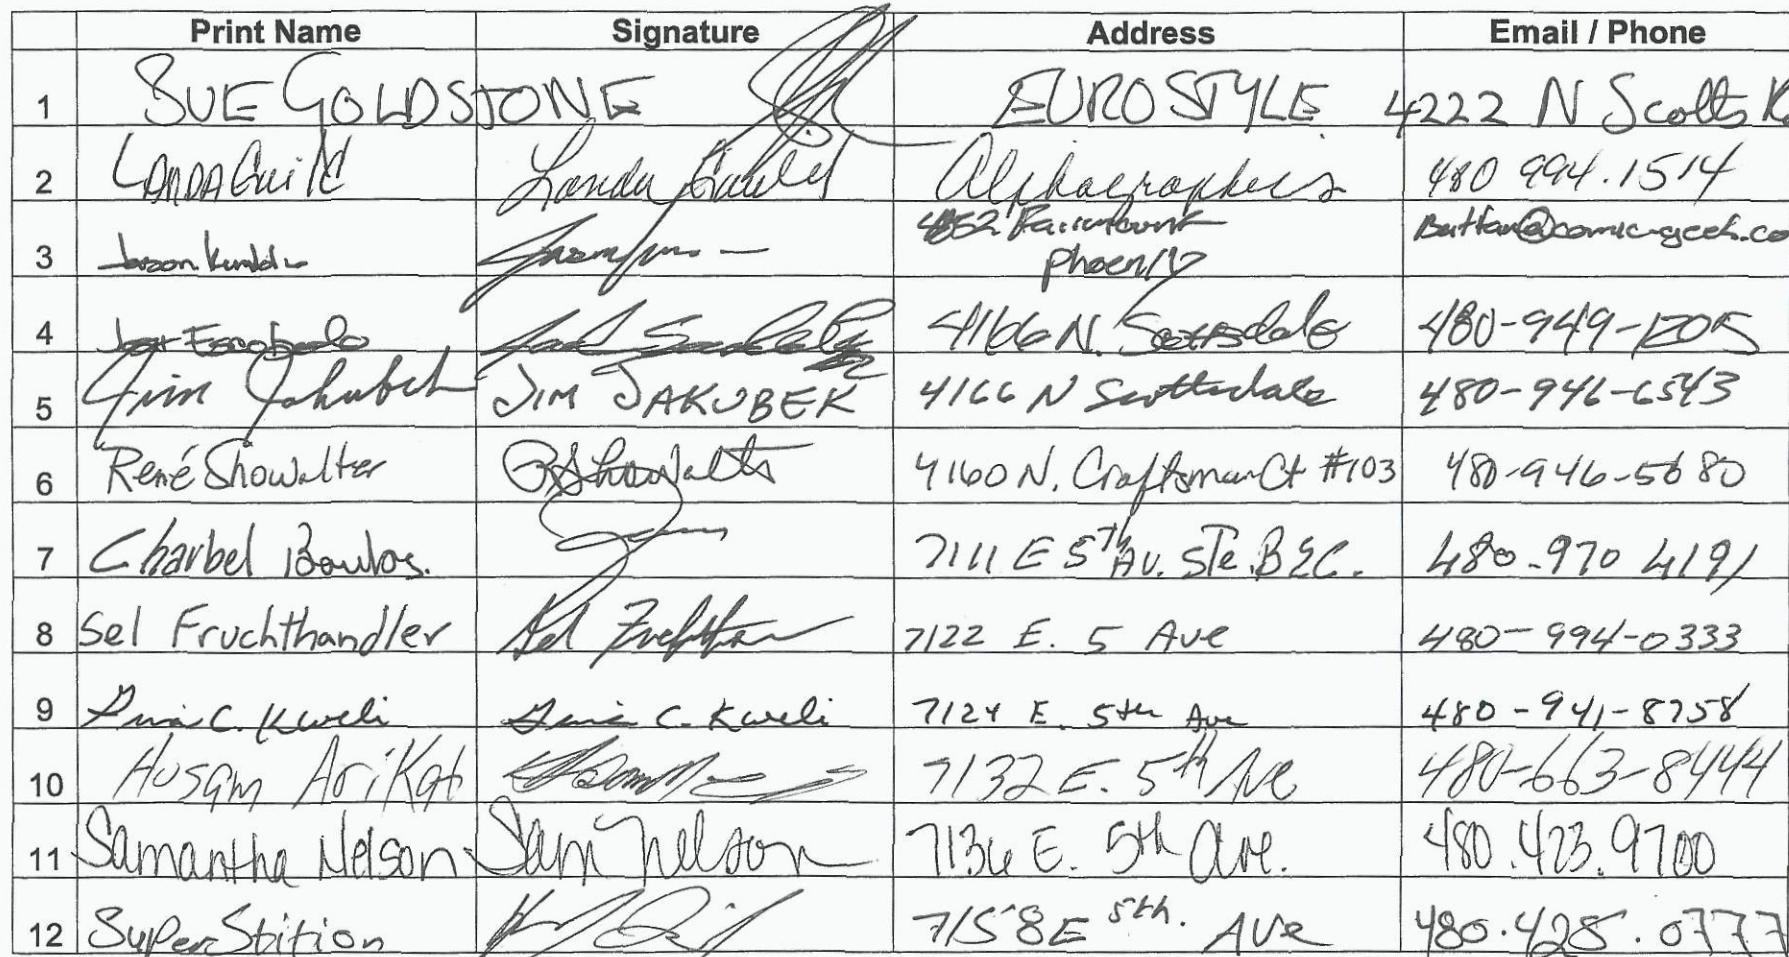 Print Name Signature Address Email / Phone
1 SUE GOLDSTONE EUROSTYLE 4222 N Scotts
2 LANDA Guild Landa Guild Alphagraphics 480 994.1514
3 Jason 4852 Fairmount
Phoenix @comic-geek.co
4 4166 N. Scottsdale 480-949-1205
5 Jim Jakubek JIM JAKUBEK 4166 N Scottsdale 480-946-6543
6 René Showalter R Showalter 4160 N. Craftsman Ct #103 480-946-5680
7 Charbel Boulos. 7111 E 5th AV. STe. B&C. 480-970 4191
8 Sel Fruchthandler Sel 7122 E. 5 Ave 480-994-0333
9 C. Kweli C. Kweli 7124 E. 5th Ave 480-941-8758
10 Husam Arikat 7132 E. 5th Ave 480-663-8444
11 Samantha Nelson Sam Nelson 7136 E. 5th Ave. 480.423.9700
12 SuperStition 7158 E 5th. AVe 480.428.0777